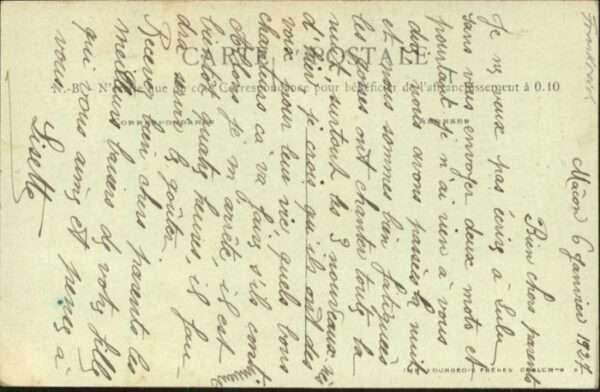 Frankreich
Mâcon 6 Janvier 1927
Bien chers parents
Je ne veux pas écrire à Lulu
sans vous envoyer deux mots et
pourtant je n'ai rien à vous
dire, nous avons passés la nuit
et nous sommes bien fatiguées
les gosses ont chanter toute la
nuit, surtout les 3 nouveaux nés
d'hier, je crois qu'ils ont des
voix pour leur vie, quels bons
chanteurs ça va faire, s'ils conti-
nuent
Allons je m'arrête, il est
bientôt quatre heures, il fau-
dra servir le goûter.
Recevez bien chers parents les
meilleurs baisers de votre fille
qui vous aime et pense à
vous.
Lisette
CARTE POSTALE
N.-B. - N' que les cinq Correspondance pour bénéficier de l'affranchissement à 0.10
CORRESPONDANCE
ADRESSE
BOURGEOIS FRÈRES CHALON-S